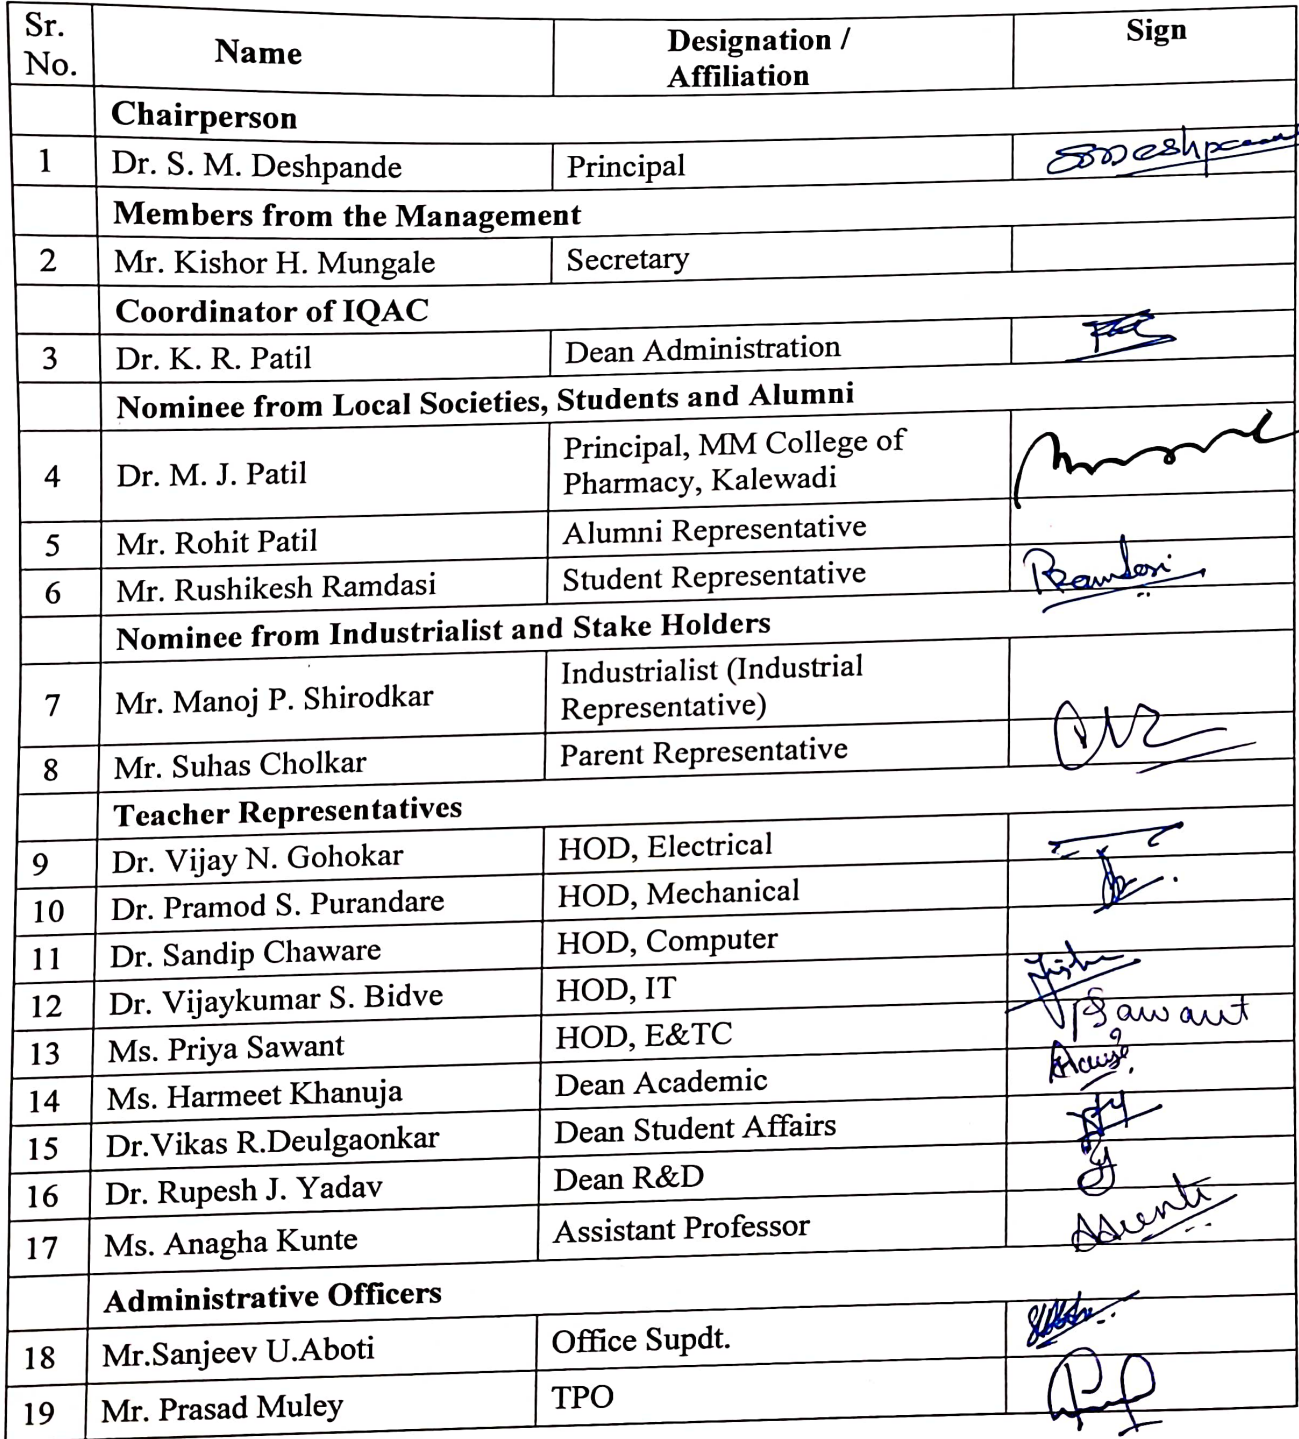 Sr.
No.
Name
Designation /
Affiliation
Sign
Chairperson
1 Dr. S. M. Deshpande Principal SMDeshpande
Members from the Management
2 Mr. Kishor H. Mungale Secretary
Coordinator of IQAC
3 Dr. K. R. Patil Dean Administration
Nominee from Local Societies, Students and Alumni
4 Dr. M. J. Patil Principal, MM College of
Pharmacy, Kalewadi
5 Mr. Rohit Patil Alumni Representative
6 Mr. Rushikesh Ramdasi Student Representative Ramdasi
Nominee from Industrialist and Stake Holders
7 Mr. Manoj P. Shirodkar Industrialist (Industrial
Representative)
8 Mr. Suhas Cholkar Parent Representative
Teacher Representatives
9 Dr. Vijay N. Gohokar HOD, Electrical
10 Dr. Pramod S. Purandare HOD, Mechanical
11 Dr. Sandip Chaware HOD, Computer
12 Dr. Vijaykumar S. Bidve HOD, IT
13 Ms. Priya Sawant HOD, E&TC PSawant
14 Ms. Harmeet Khanuja Dean Academic
15 Dr.Vikas R.Deulgaonkar Dean Student Affairs
16 Dr. Rupesh J. Yadav Dean R&D
17 Ms. Anagha Kunte Assistant Professor
Administrative Officers
18 Mr.Sanjeev U.Aboti Office Supdt.
19 Mr. Prasad Muley TPO